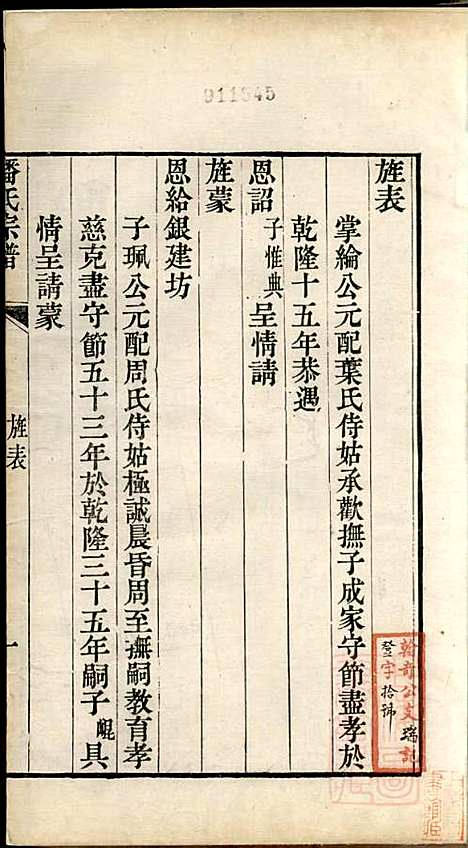 911345
旌表
掌綸公元配葉氏侍姑承歡撫子成家守節盡孝於
乾隆十五年恭遇
恩詔子惟典呈情請
旌蒙
恩給銀建坊
子珮公元配周氏侍姑極誠晨昏周至撫嗣教育孝
慈克盡守節五十三年於乾隆三十五年嗣子崐具
情呈請蒙
潘氏宗譜
旌表
一
翰奇公支瑞記
登字拾號